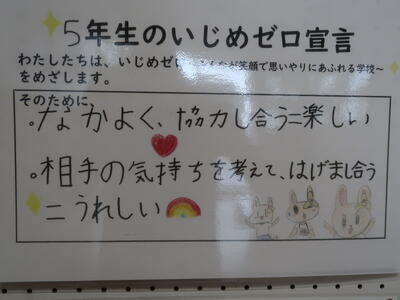 5年生のいじめゼロ宣言
わたしたちは、いじめゼロ 笑顔で思いやりにあふれる学校～
をめざします。
そのために、
。なかよく、協力し合う＝楽しい
。相手の気持ちを考えて、はげまし合う
＝うれしい